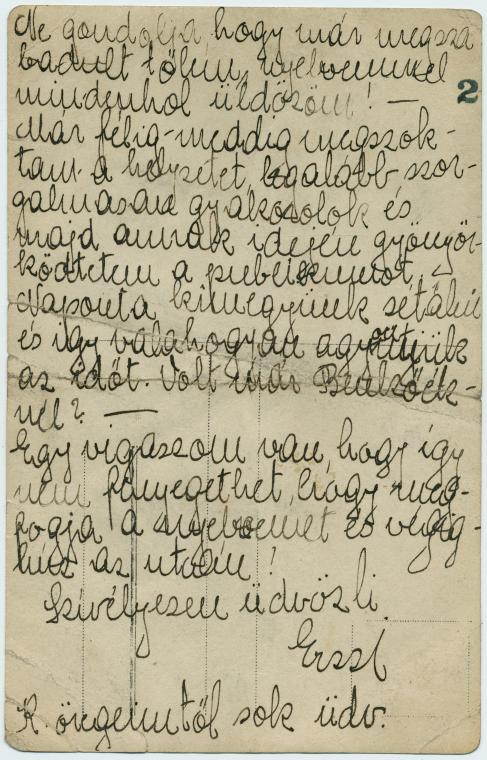 Ne gondolja, hogy már megsza
badult tőlem, nyelvemmel
mindenhol üldözöm! —
2
Már félig-meddig megszok-
tam a helyzetet, legalább szor-
galmasan gyakorolok és
majd annak idején gyönyör-
ködtetem a publikumot.
Naponta kimegyünk sétálni
és így valahogyan agyonütjük
az időt. Volt már
nél? —
Egy vigaszom van, hogy így
nem fenyegethet, hogy meg-
fogja a nyelvemet és végig-
húz az utcán!
Szívélyesen üdvözli
Erzsi
K. öregeimtől sok üdv.